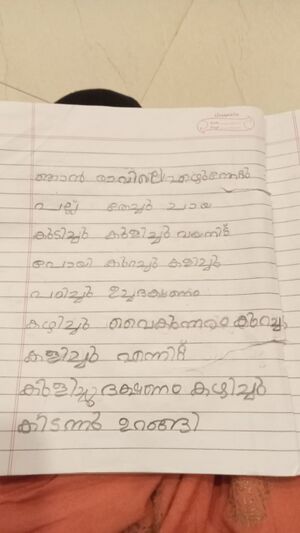 ഞാൻ രാവിലെ
പല്ല് തേച്ചു ചായ
കുടിച്ചു കുളിച്ചു
പോയി കുറച്ചു കളിച്ചു
പഠിച്ചു ഉച്ചഭക്ഷണം
കഴിച്ചു വൈകുന്നരം കുറച്ചു
കളിച്ചു എന്നിട്ട്
കുളിച്ചു ഭക്ഷണം കഴിച്ചു
കിടന്നു ഉറങ്ങി